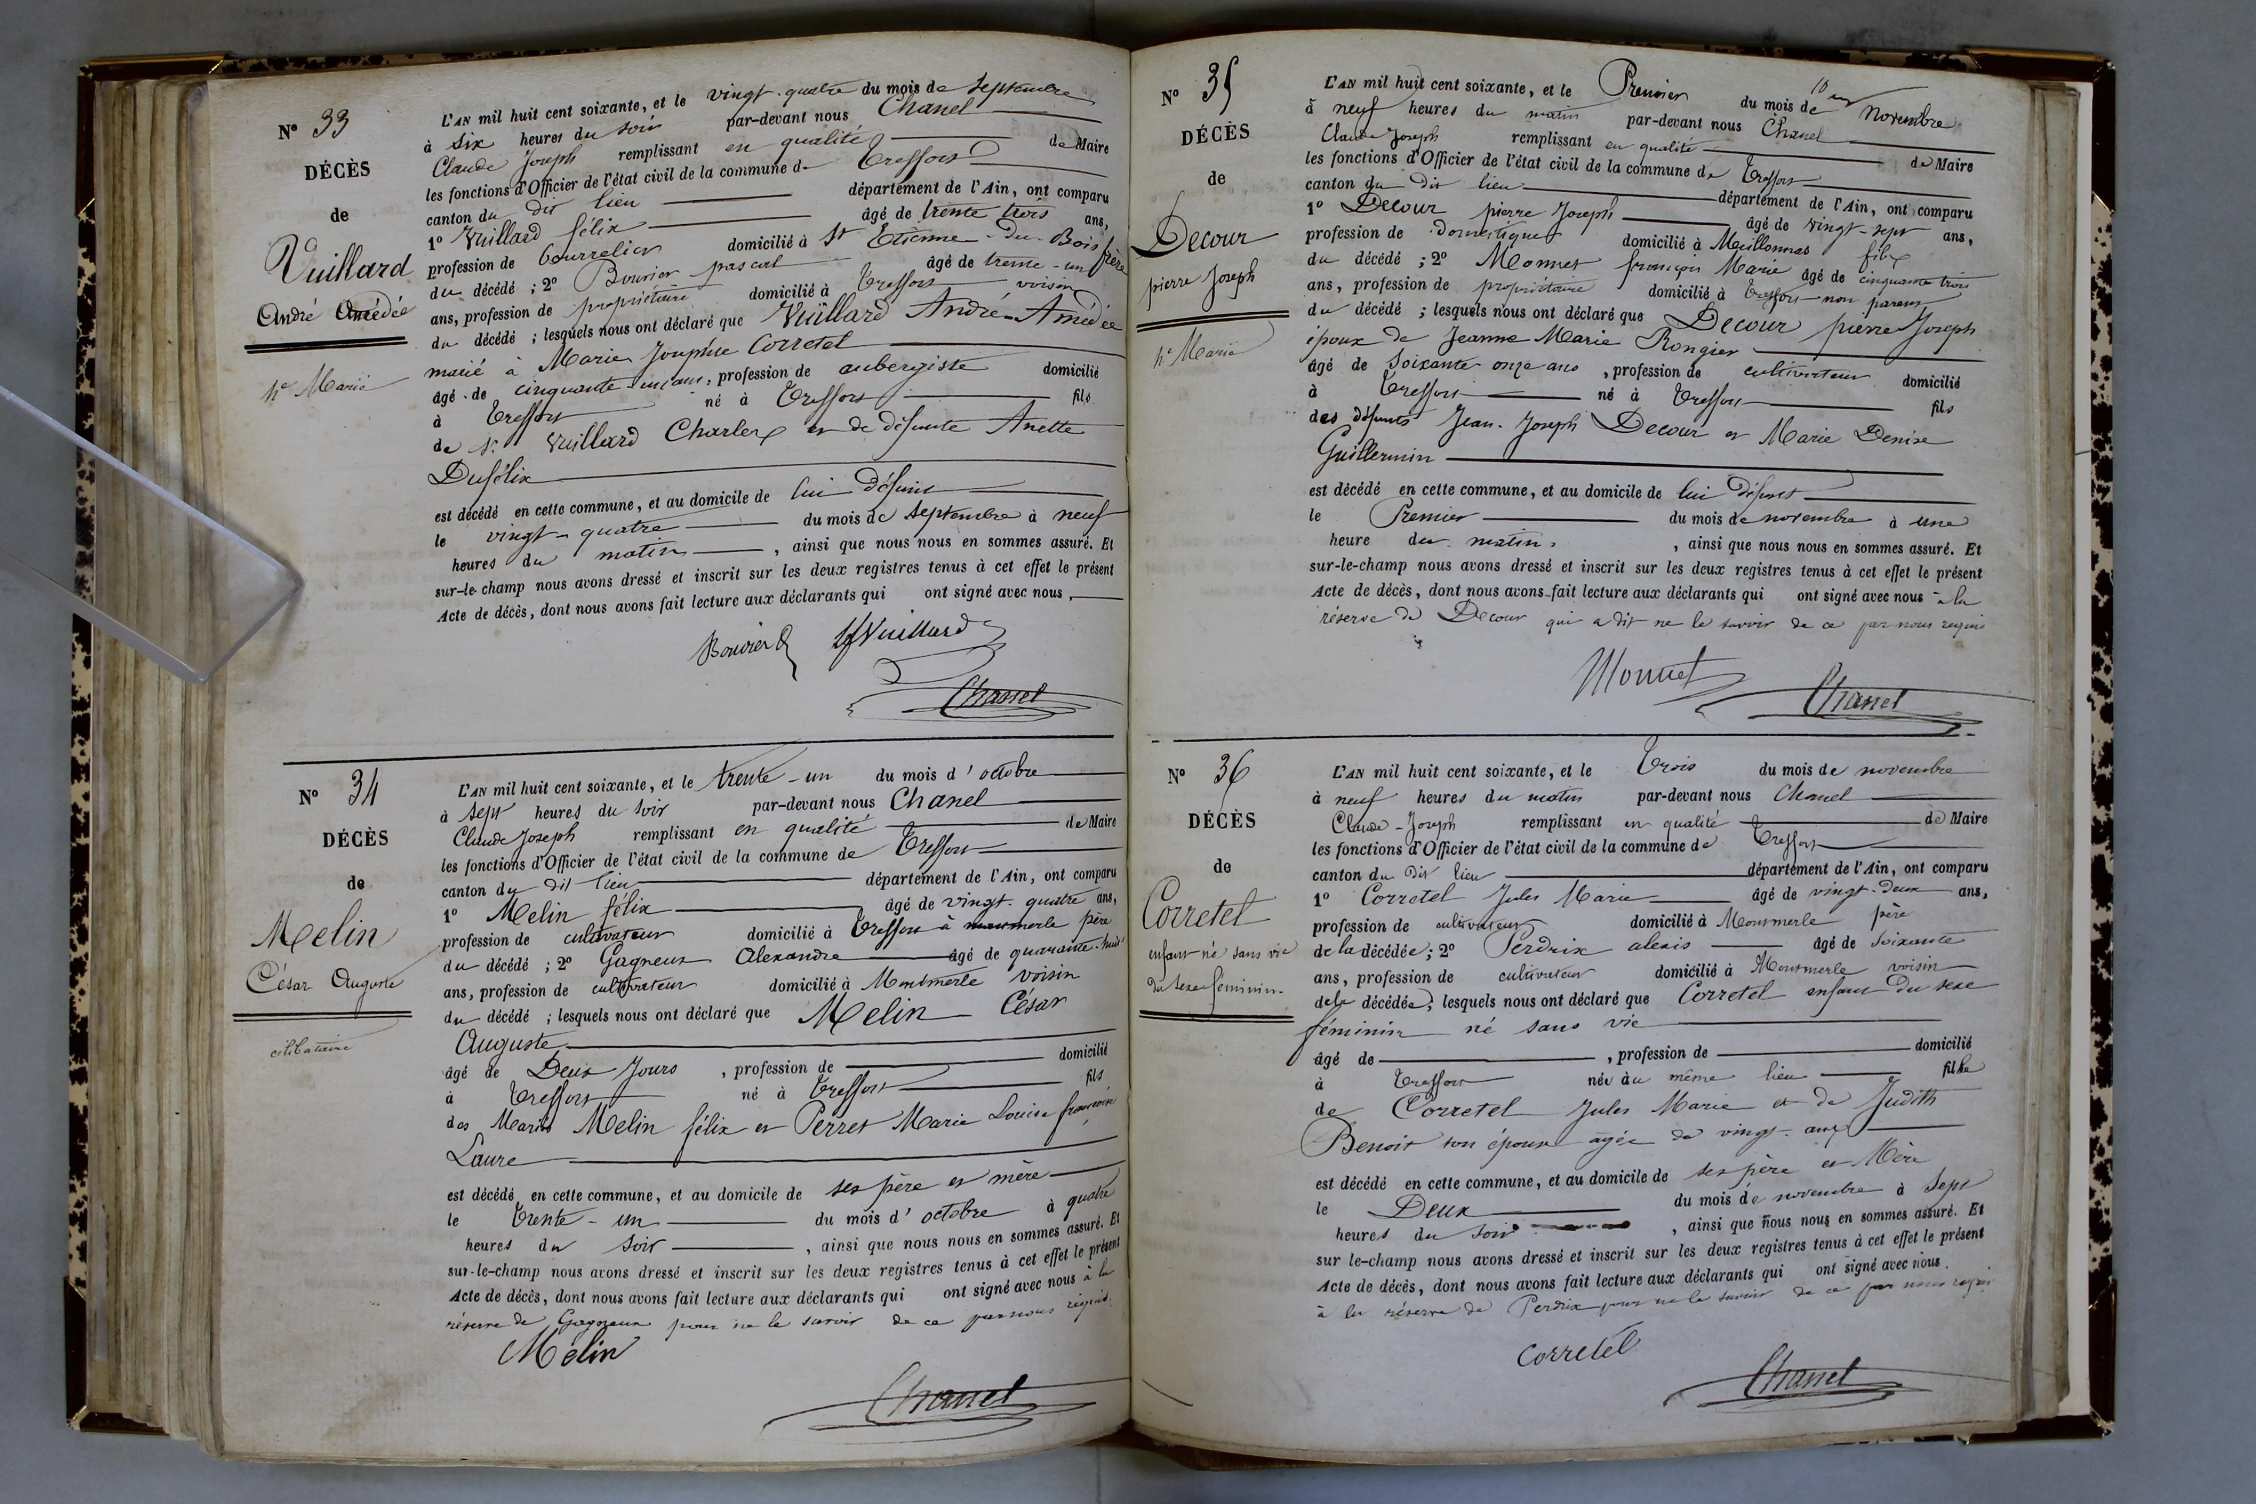 N° 33
DÉCÈS
de
Vuillard
André Amédée
h.e Marié
L'AN mil huit cent soixante, et le vingt-quatre du mois de Septembre
à six heures du soir par-devant nous Chanel
Claude Joseph remplissant en qualité de Maire
les fonctions d'Officier de l'état civil de la commune de Treffort
canton du dit lieu département de l'Ain, ont comparu
1° Vuillard félix âgé de trente trois ans,
profession de bourrelier domicilié à St Etienne-du-Bois frère
du décédé ; 2° Bouvier pascal âgé de trente-un
ans, profession de propriétaire domicilié à Treffort voisin
du décédé ; lesquels nous ont déclaré que Vuillard André Amédée
marié à Marie Josephte Corretel
âgé de cinquante-un ans, profession de aubergiste domicilié
à Treffort né à Treffort fils
de Sr Vuillard Charles et de défunte Anette
Dufélix
est décédé en cette commune, et au domicile de lui défunt
le vingt-quatre du mois de Septembre à neuf
heures du matin, ainsi que nous nous en sommes assuré. Et
sur-le-champ nous avons dressé et inscrit sur les deux registres tenus à cet effet le présent
Acte de décès, dont nous avons fait lecture aux déclarants qui ont signé avec nous,
Bouvier Vuillard
Chanel
N° 34
DÉCÈS
de
Melin
César Auguste
célibataire
L'AN mil huit cent soixante, et le trente-un du mois d'octobre
à sept heures du soir par-devant nous Chanel
Claude Joseph remplissant en qualité de Maire
les fonctions d'Officier de l'état civil de la commune de Treffort
canton du dit lieu département de l'Ain, ont comparu
1° Melin félix âgé de vingt-quatre ans,
profession de cultivateur domicilié à Treffort à montmerle père
du décédé ; 2° Gagneux Alexandre âgé de quarante-huit
ans, profession de cultivateur domicilié à Montmerle voisin
du décédé ; lesquels nous ont déclaré que Melin César
Auguste
âgé de Deux Jours, profession de domicilié
à Treffort né à Treffort fils
des Mariés Melin félix et Perret Marie Louise françoise
Laure
est décédé en cette commune, et au domicile de ses père et mère
le trente-un du mois d'octobre à quatre
heures du soir, ainsi que nous nous en sommes assuré. Et
sur-le-champ nous avons dressé et inscrit sur les deux registres tenus à cet effet le présent
Acte de décès, dont nous avons fait lecture aux déclarants qui ont signé avec nous à la
réserve de Gagneux pour ne le savoir de ce par nous requis.
Mélin
Chanel
N° 35
DÉCÈS
de
Decour
pierre Joseph
h.e Marié
L'AN mil huit cent soixante, et le Premier du mois de Novembre
à neuf heures du matin par-devant nous Chanel
Claude Joseph remplissant en qualité de Maire
les fonctions d'Officier de l'état civil de la commune de Treffort
canton du dit lieu département de l'Ain, ont comparu
1° Decour pierre Joseph âgé de vingt-sept ans,
profession de domestique domicilié à Meillonnas fils
du décédé ; 2° Monnet françois Marie âgé de cinquante trois
ans, profession de propriétaire domicilié à Treffort non parent
du décédé ; lesquels nous ont déclaré que Decour pierre Joseph
époux de Jeanne Marie Rongier
âgé de Soixante onze ans, profession de cultivateur domicilié
à Treffort né à Treffort fils
des défunts Jean-Joseph Decour et Marie Denise
Guillermin
est décédé en cette commune, et au domicile de lui défunt
le Premier du mois de novembre à une
heure du matin, ainsi que nous nous en sommes assuré. Et
sur-le-champ nous avons dressé et inscrit sur les deux registres tenus à cet effet le présent
Acte de décès, dont nous avons fait lecture aux déclarants qui ont signé avec nous à la
réserve de Decour qui a dit ne le savoir de ce par nous requis
Monnet
Chanel
N° 36
DÉCÈS
de
Corretel
enfant né sans vie
du sexe féminin
L'AN mil huit cent soixante, et le Trois du mois de novembre
à neuf heures du matin par-devant nous Chanel
Claude-Joseph remplissant en qualité de Maire
les fonctions d'Officier de l'état civil de la commune de Treffort
canton du dit lieu département de l'Ain, ont comparu
1° Corretel Jules Marie âgé de vingt-deux ans,
profession de cultivateur domicilié à Montmerle père
de la décédée ; 2° Perdrix alexis âgé de soixante
ans, profession de cultivateur domicilié à Montmerle voisin
de la décédée ; lesquels nous ont déclaré que Corretel enfant du sexe
féminin né sans vie
âgé de, profession de domicilié
à Treffort née au même lieu fille
de Corretel Jules Marie et de Judith
Benoit son épouse agée de vingt ans
est décédé en cette commune, et au domicile de ses père et Mère
le Deux du mois de novembre à sept
heures du soir, ainsi que nous nous en sommes assuré. Et
sur le-champ nous avons dressé et inscrit sur les deux registres tenus à cet effet le présent
Acte de décès, dont nous avons fait lecture aux déclarants qui ont signé avec nous.
à la réserve de Perdrix pour ne le savoir de ce par nous requis
Corretel
Chanel